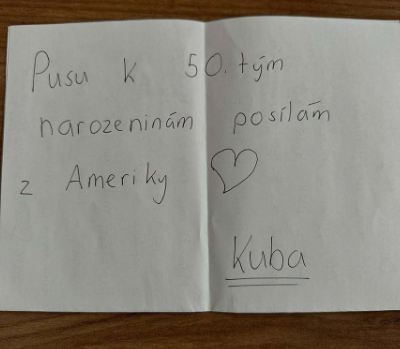 Pusu k 50. tým
narozeninám posílám
z Ameriky ♡
Kuba